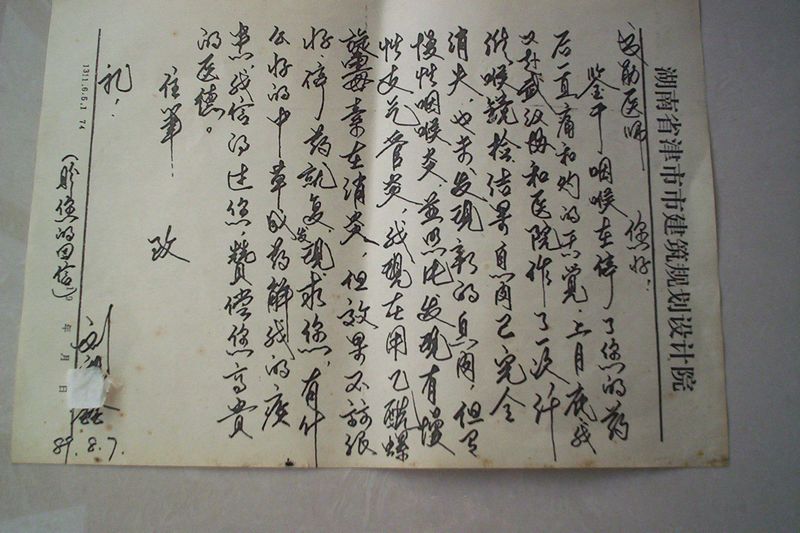 湖南省津市市建筑规划设计院
医师 您好:
鉴于咽喉在停了您的药
后一直痛和灼的感觉,上月底我
又赴武汉协和医院作了一次纤
维喉镜检结果息肉已完全
消失,也未发现新的息肉,但有
慢性咽喉炎,并照片发现有慢
性支气管炎,我现在用乙酰螺
旋霉素在消炎,但效果不能很
好,停药就复发现求您,有什
么好的中草成药解我的疾
患,我信的过您,赞偿您高贵
的医德。
住笔.
致
礼!
(盼您的回信)
年 月 日
89.8.7.
1311.6.6.1 74